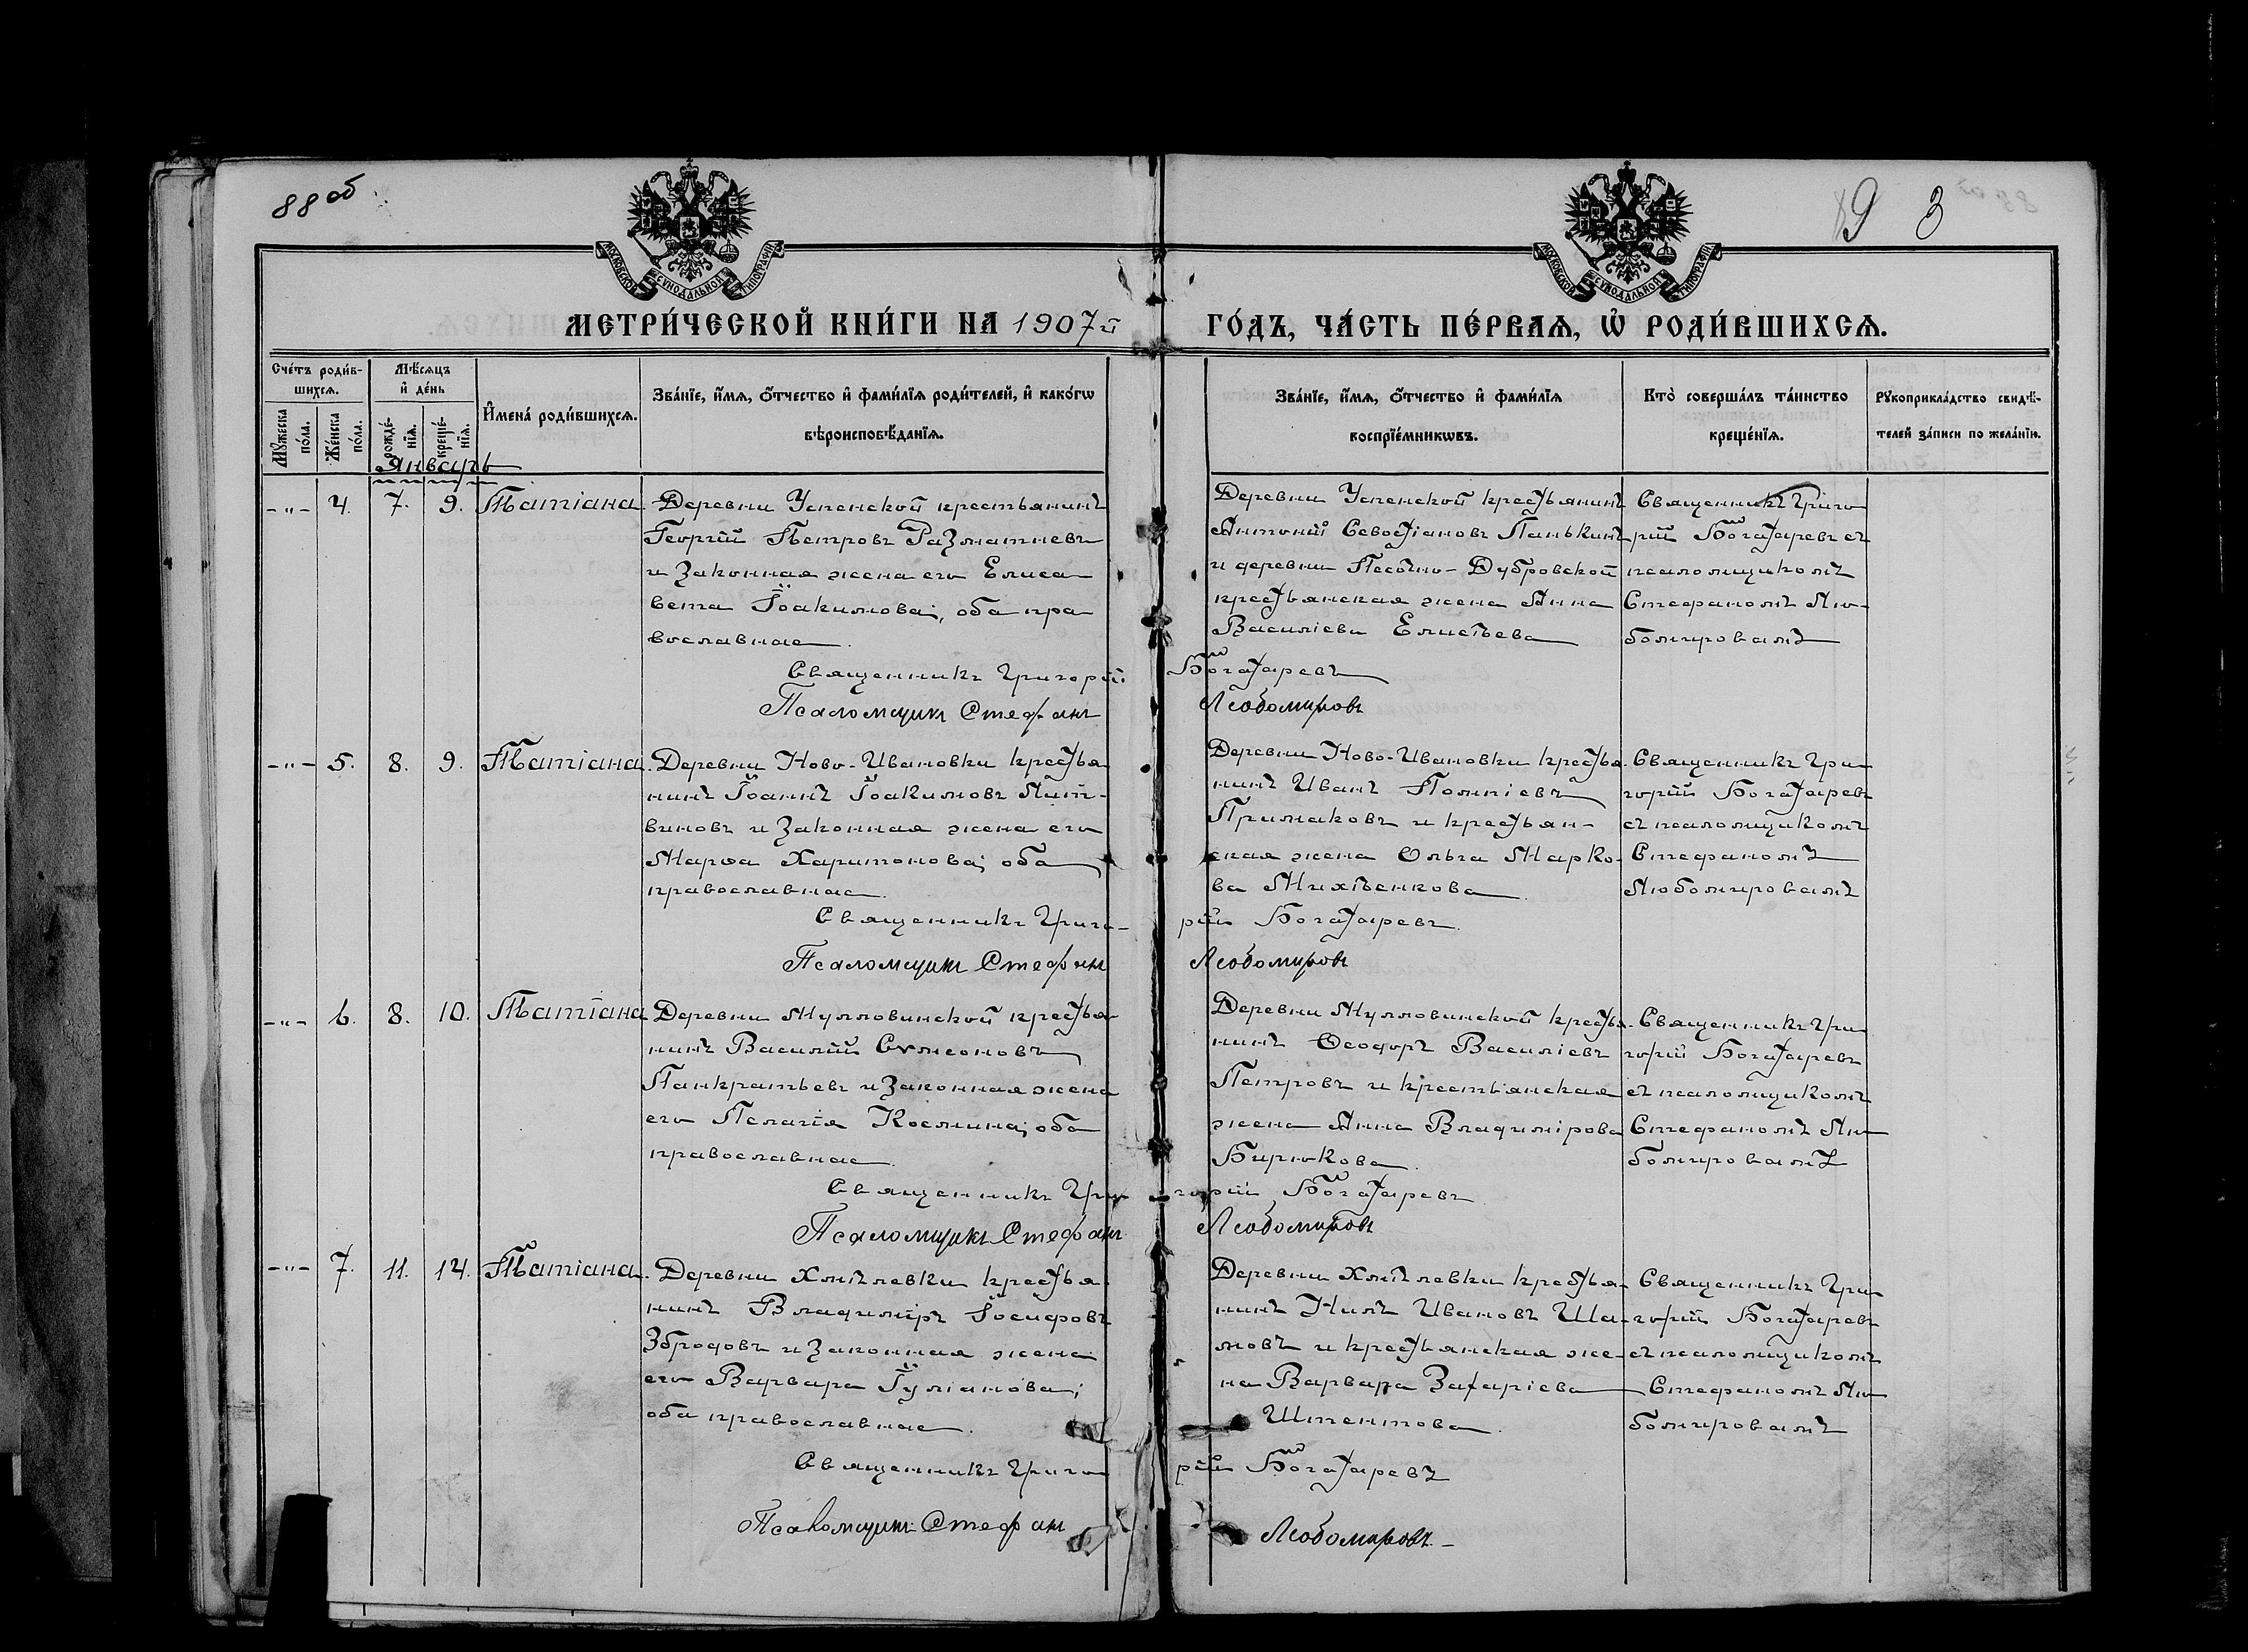 88 об
89 3
МОСКОВСКОЙ СУНОДАЛЬНОЙ ТИПОГРАФІИ
МОСКОВСКОЙ СУНОДАЛЬНОЙ ТИПОГРАФІИ
МЕТРИ́ЧЕСКОЙ КНИ́ГИ НА 1907й
ГО́ДЪ, ЧА́СТЬ ПЕ́РВАЯ, Ѡ҆ РОДИ́ВШИХСЯ.
Сче́тъ роди́в-
шихся.
Мꙋжеска по́ла.
Же́нска по́ла.
Мѣ́сяцъ и҆ де́нь
рожде́-нїя.
креще́-нїя.
И҆мена̀ роди́вшихся.
Зва́нїе, и҆́мя, ѻ҆́тчество и҆ фами́лїя роди́телей, и҆ како́гѡ
вѣроисповѣ́данїя.
Зва́нїе, и҆́мя, ѻ҆́тчество и҆ фами́лїя
воспрїе́мникѡвъ.
Кто̀ соверша́лъ та́инство
креще́нїя.
Рꙋкоприкла́дство свидѣ́-
телей за́писи по жела́нїю.
Январь
-"- 4. 7. 9. Татіана
Деревни Успенской крестьянинъ
Георгій Петровъ Разматневъ
и законная жена его Елиса
вета Іоакимова; оба пра
вославные.
Деревни Успенской крестьянинъ
Антоній Севостіановъ Панькинъ
и деревни Песочно-Дубровской
крестьянская жена Анна
Василіева Елистьева
Священникъ Григо
рій Богатыревъ съ
псаломщикомъ
Стефаномъ Лю-
бомировымъ
Священникъ Григорій Богатыревъ
Псаломщикъ Стефанъ Любомировъ
-"- 5. 8. 9. Татіана.
Деревни Ново-Ивановки крестья
нинъ Іоаннъ Іоакимовъ Лит-
виновъ и законная жена его
Марѳа Харитонова; оба
православные.
Деревни Ново-Ивановки крестья-
нинъ Иванъ Помпіевъ
Примаковъ и крестьян-
ская жена Ольга Марко-
ва Михѣенкова.
Священникъ Гри
горій Богатыревъ
съ псаломщикомъ
Стефаномъ
Любомировымъ
Священникъ Григо-рій Богатыревъ.
Псаломщикъ Стефанъ Любомировъ
-"- 6. 8. 10. Татіана
Деревни Мулловинской крестья-
нинъ Василій Сѵмеоновъ
Панкратьевъ и законная жена
его Пелагія Космина; оба
православные.
Деревни Мулловинской крестья-
нинъ Ѳеодоръ Василіевъ
Петровъ и крестьянская
жена Анна Владимірова
Бирюкова.
Священникъ Гри
горій Богатыревъ
съ псаломщикомъ
Стефаномъ Лю
бомировымъ
Священникъ Григорій Богатыревъ
Псаломщикъ Стефанъ Любомировъ
-"- 7. 11. 14. Татіана.
Деревни Хмѣлевки крестья-
нинъ Владиміръ Іосифовъ
Збродовъ и законная жена
его Варвара Іуліанова;
оба православные.
Деревни Хмѣлевки крестья-
нинъ Нилъ Ивановъ Ша-
мовъ и крестьянская же-
на Варвара Захаріева
Штентова.
Священникъ Гри
горій Богатыревъ
съ псаломщикомъ
Стефаномъ Лю
бомировымъ
Священникъ Григорій Богатыревъ
Псаломщикъ Стефанъ Любомировъ.